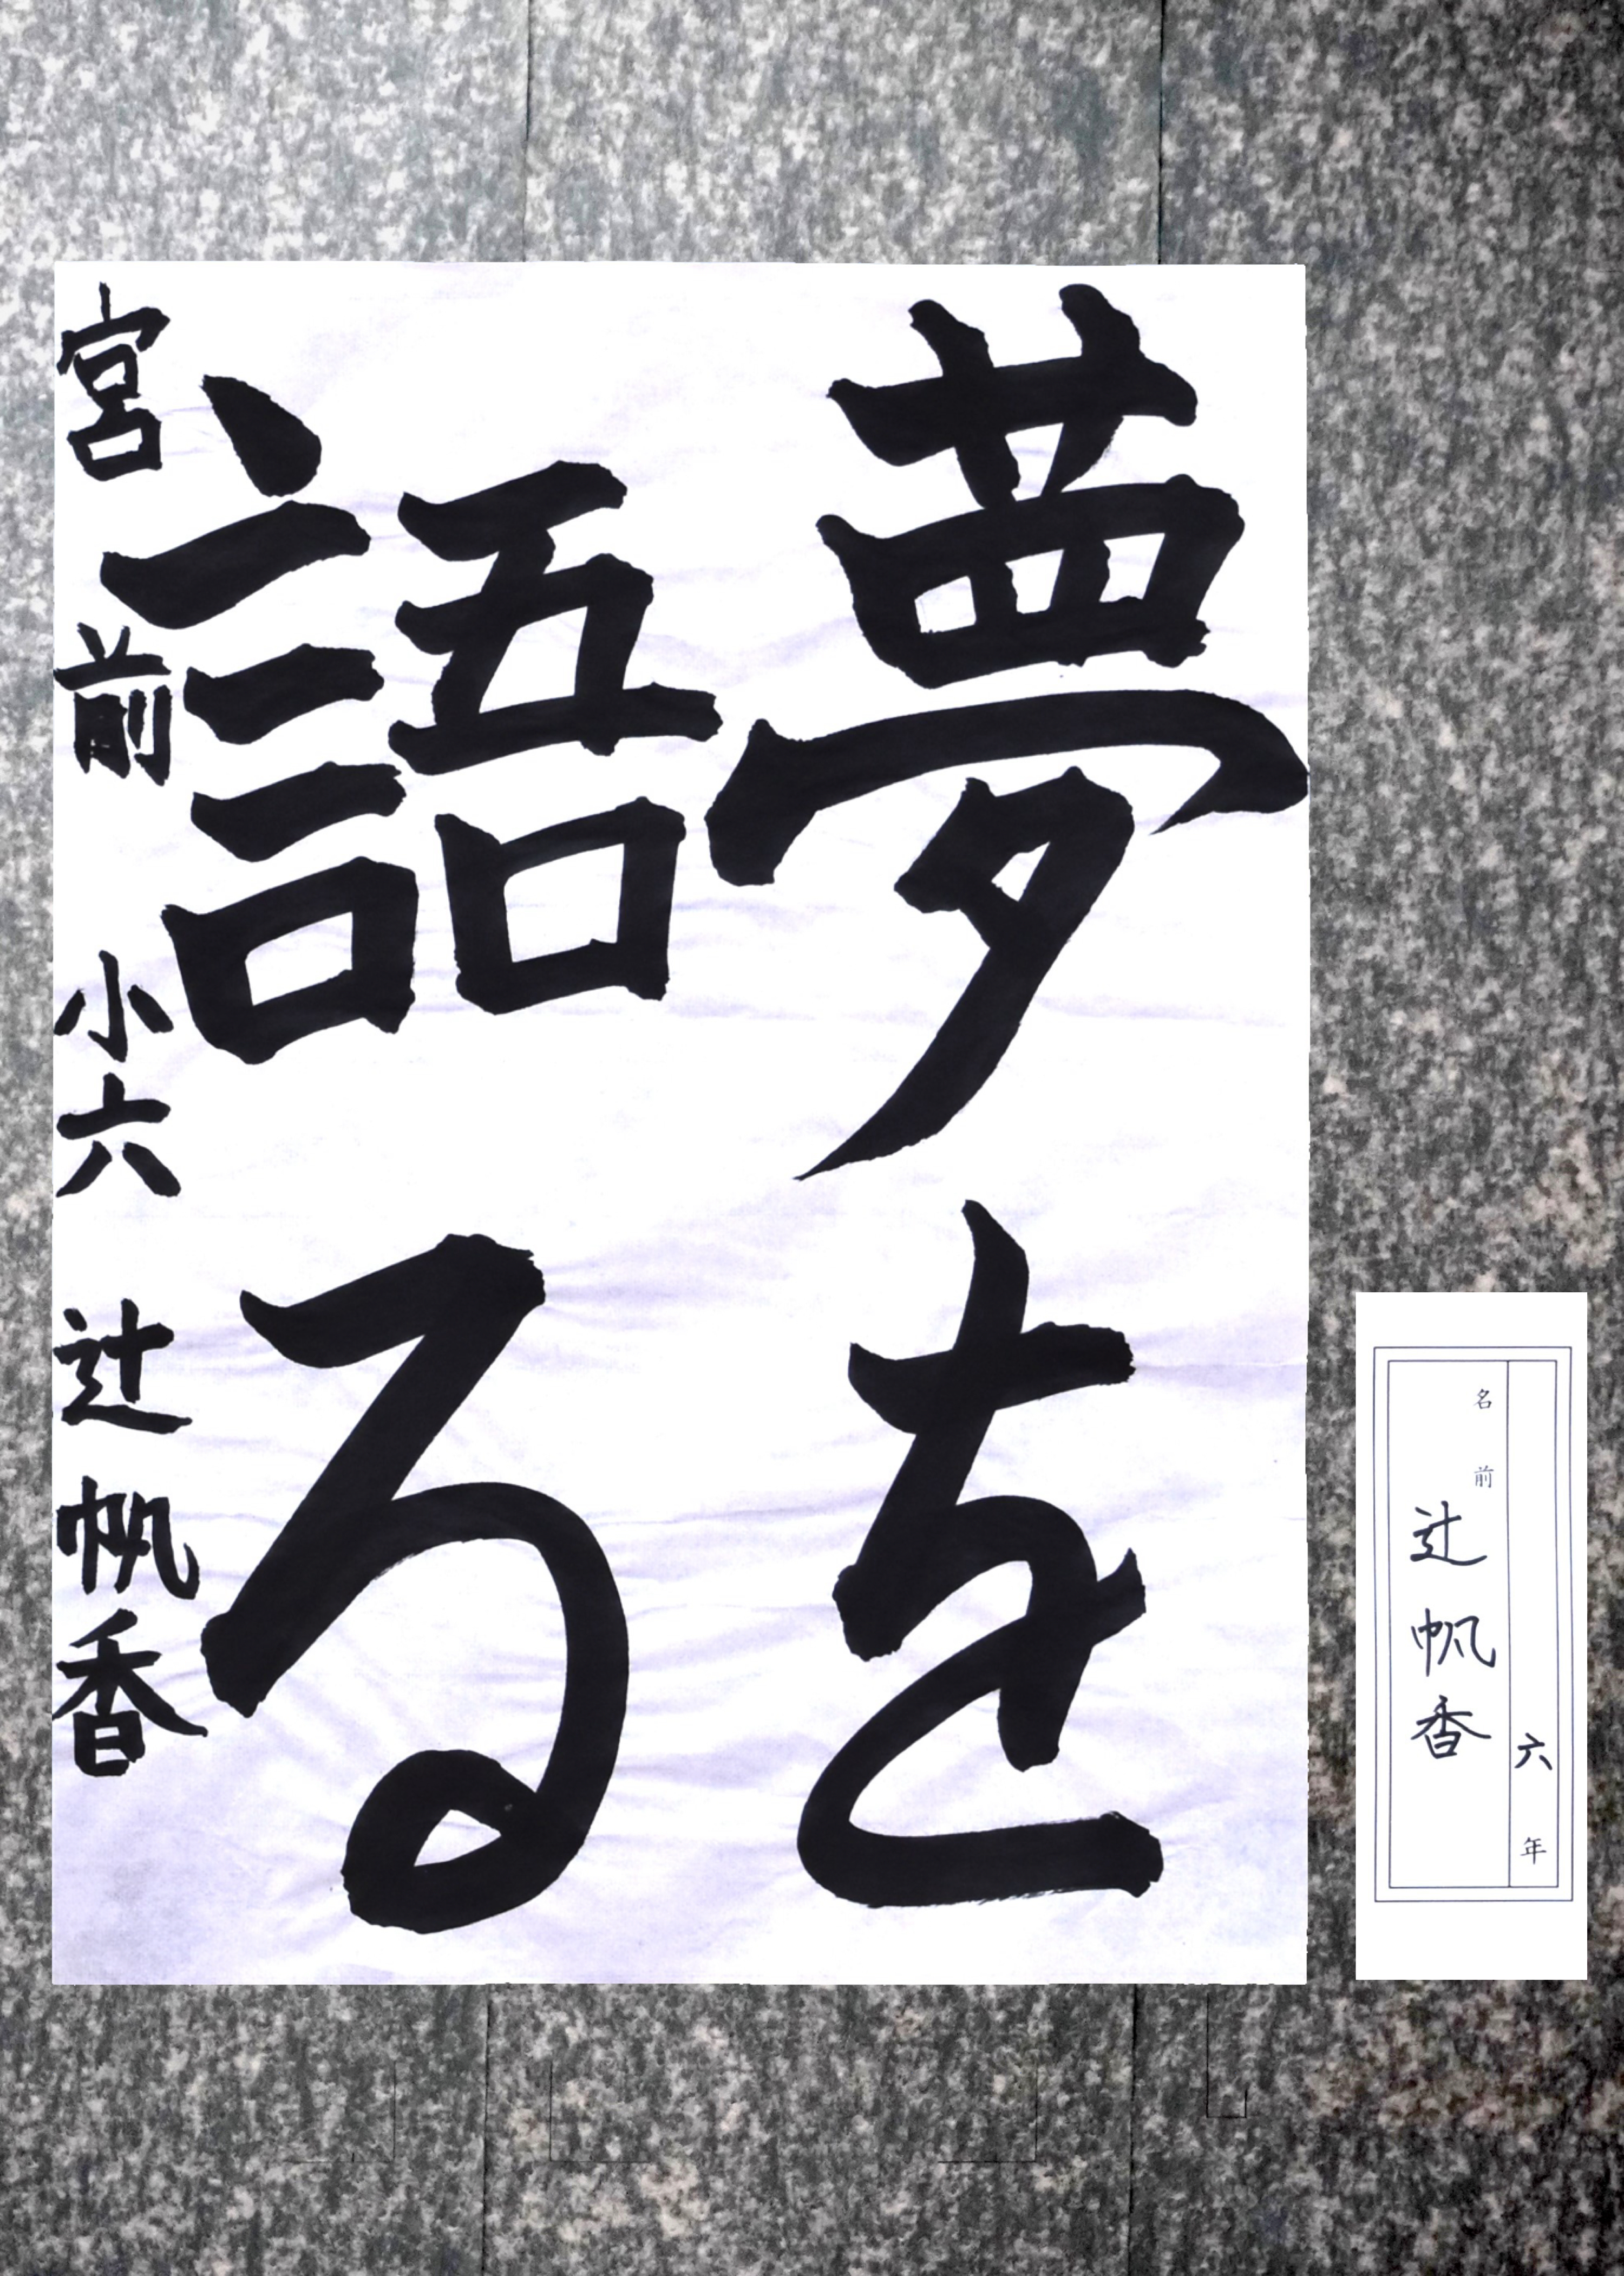 夢を
語る
宮前 小六 辻帆香
六年
名前 辻帆香